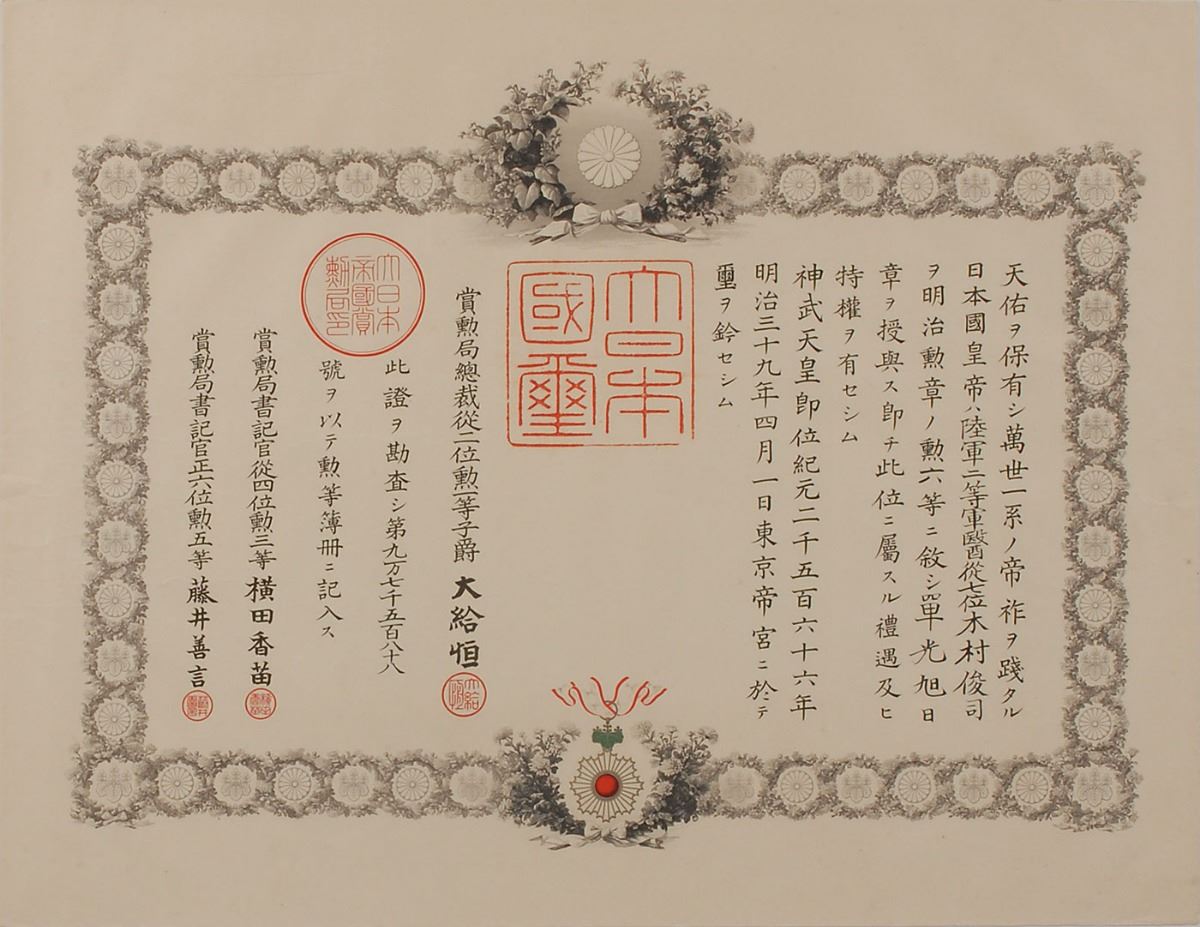 天佑ヲ保有シ萬世一系ノ帝祚ヲ踐タル
日本國皇帝ハ陸軍二等軍醫從七位木村俊司
ヲ明治勲章ノ勲六等ニ敘シ單光旭日
章ヲ授與ス卽チ此位ニ屬スル禮遇及ヒ
特權ヲ有セシム
神武天皇卽位紀元二千五百六十六年
明治三十九年四月一日東京帝宮ニ於テ
璽ヲ鈐セシム
大日本
國璽
賞勲局總裁從二位勲一等子爵大給恒
大給
恒
此證ヲ勘査シ第九万七千五百八十八
號ヲ以テ勲等簿册ニ記入ス
大日本
帝國賞
勳局印
賞勲局書記官從四位勲三等橫田香苗
賞勲局書記官正六位勲五等藤井善言